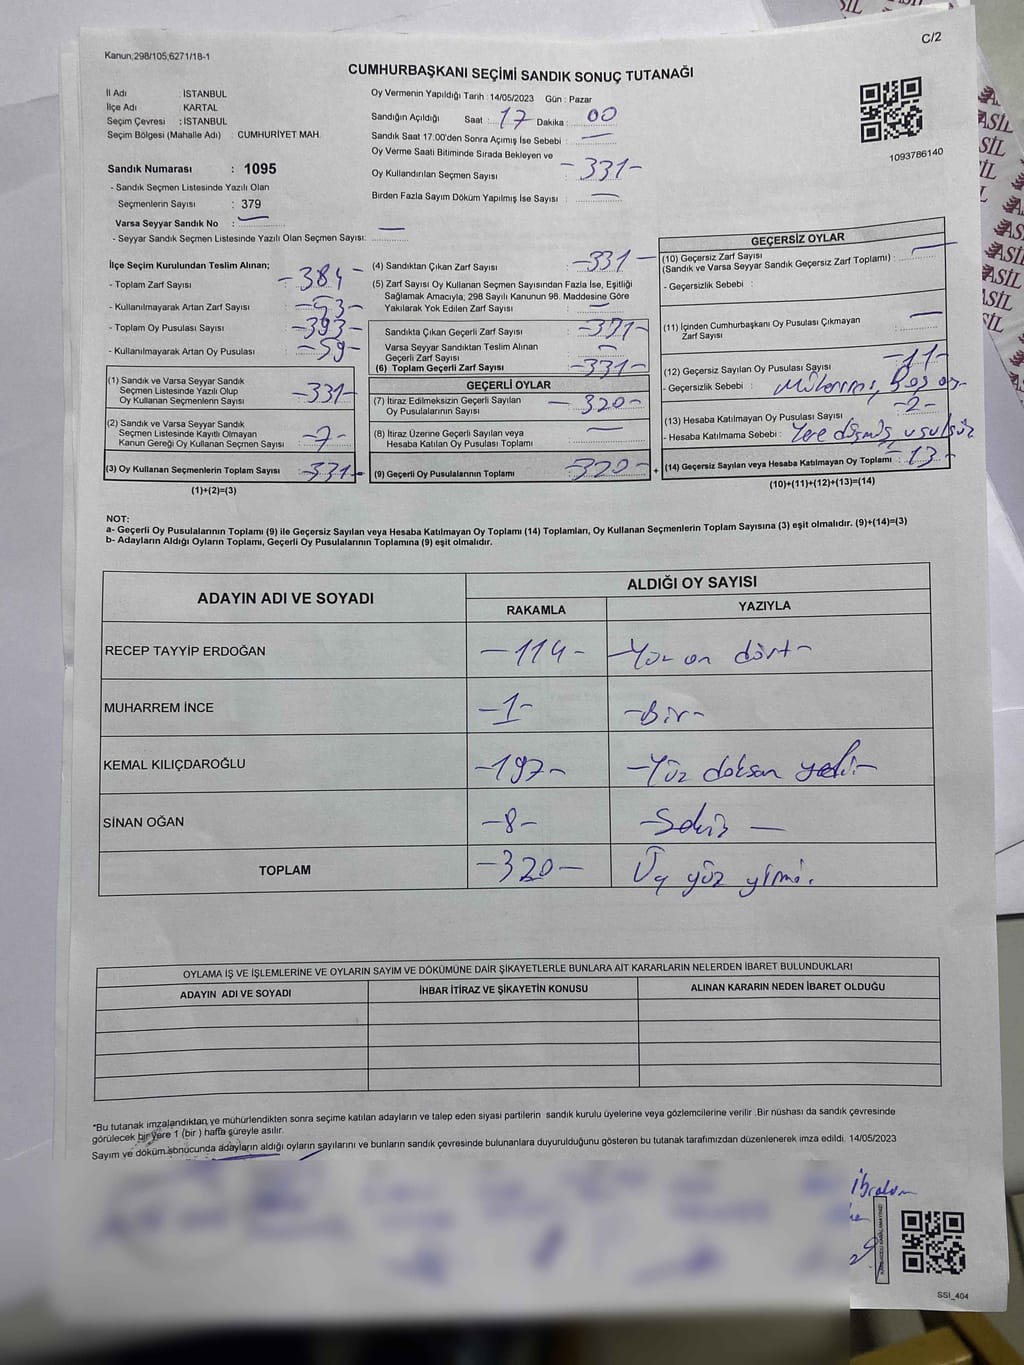 C/2
Kanun;298/105;6271/18-1
CUMHURBAŞKANI SEÇİMİ SANDIK SONUÇ TUTANAĞI
İl Adı : İSTANBUL
İlçe Adı : KARTAL
Seçim Çevresi : İSTANBUL
Seçim Bölgesi (Mahalle Adı) : CUMHURİYET MAH.
Oy Vermenin Yapıldığı Tarih : 14/05/2023 Gün : Pazar
Sandığın Açıldığı Saat : 17 Dakika : 00
Sandık Saat 17:00'den Sonra Açımış İse Sebebi : —
Oy Verme Saati Bitiminde Sırada Bekleyen ve
Oy Kullandırılan Seçmen Sayısı : -331-
Birden Fazla Sayım Döküm Yapılmış İse Sayısı : —
1093786140
Sandık Numarası : 1095
- Sandık Seçmen Listesinde Yazılı Olan
Seçmenlerin Sayısı : 379
Varsa Seyyar Sandık No : —
- Seyyar Sandık Seçmen Listesinde Yazılı Olan Seçmen Sayısı: —
İlçe Seçim Kurulundan Teslim Alınan;
- Toplam Zarf Sayısı : -384-
- Kullanılmayarak Artan Zarf Sayısı : -53-
- Toplam Oy Pusulası Sayısı : -393-
- Kullanılmayarak Artan Oy Pusulası : -59-
(1) Sandık ve Varsa Seyyar Sandık
Seçmen Listesinde Yazılı Olup
Oy Kullanan Seçmenlerin Sayısı : -331-
(2) Sandık ve Varsa Seyyar Sandık
Seçmen Listesinde Kayıtlı Olmayan
Kanun Gereği Oy Kullanan Seçmen Sayısı :
(3) Oy Kullanan Seçmenlerin Toplam Sayısı : -331-
(1)+(2)=(3)
(4) Sandıktan Çıkan Zarf Sayısı : -331-
(5) Zarf Sayısı Oy Kullanan Seçmen Sayısından Fazla İse, Eşitliği
Sağlamak Amacıyla; 298 Sayılı Kanunun 98. Maddesine Göre
Yakılarak Yok Edilen Zarf Sayısı : —
Sandıkta Çıkan Geçerli Zarf Sayısı :
Varsa Seyyar Sandıktan Teslim Alınan
Geçerli Zarf Sayısı : —
(6) Toplam Geçerli Zarf Sayısı : -331-
GEÇERLİ OYLAR
(7) İtiraz Edilmeksizin Geçerli Sayılan
Oy Pusulalarının Sayısı : -320-
(8) İtiraz Üzerine Geçerli Sayılan veya
Hesaba Katılan Oy Pusulası Toplamı : —
(9) Geçerli Oy Pusulalarının Toplamı : -320-
+
GEÇERSİZ OYLAR
(10) Geçersiz Zarf Sayısı
(Sandık ve Varsa Seyyar Sandık Geçersiz Zarf Toplamı) : —
- Geçersizlik Sebebi :
(11) İçinden Cumhurbaşkanı Oy Pusulası Çıkmayan
Zarf Sayısı : —
(12) Geçersiz Sayılan Oy Pusulası Sayısı : -11-
- Geçersizlik Sebebi :
(13) Hesaba Katılmayan Oy Pusulası Sayısı : -2-
- Hesaba Katılmama Sebebi : Yere düşmüş, usulsüz
(14) Geçersiz Sayılan veya Hesaba Katılmayan Oy Toplamı : -13-
(10)+(11)+(12)+(13)=(14)
NOT:
a- Geçerli Oy Pusulalarının Toplamı (9) ile Geçersiz Sayılan veya Hesaba Katılmayan Oy Toplamı (14) Toplamları, Oy Kullanan Seçmenlerin Toplam Sayısına (3) eşit olmalıdır. (9)+(14)=(3)
b- Adayların Aldığı Oyların Toplamı, Geçerli Oy Pusulalarının Toplamına (9) eşit olmalıdır.
ADAYIN ADI VE SOYADI ALDIĞI OY SAYISI
RAKAMLA YAZIYLA
RECEP TAYYİP ERDOĞAN -114- -Yüz on dört-
MUHARREM İNCE -1- -Bir-
KEMAL KILIÇDAROĞLU -197- -Yüz doksan yedi-
SİNAN OĞAN -8- -Sekiz-
TOPLAM -320- Üç yüz yirmi.
OYLAMA İŞ VE İŞLEMLERİNE VE OYLARIN SAYIM VE DÖKÜMÜNE DAİR ŞİKAYETLERLE BUNLARA AİT KARARLARIN NELERDEN İBARET BULUNDUKLARI
ADAYIN ADI VE SOYADI İHBAR İTİRAZ VE ŞİKAYETİN KONUSU ALINAN KARARIN NEDEN İBARET OLDUĞU
*Bu tutanak imzalandıktan ve mühürlendikten sonra seçime katılan adayların ve talep eden siyasi partilerin sandık kurulu üyelerine veya gözlemcilerine verilir .Bir nüshası da sandık çevresinde
görülecek bir yere 1 (bir ) hafta süreyle asılır.
Sayım ve döküm sonucunda adayların aldığı oyların sayılarını ve bunların sandık çevresinde bulunanlara duyurulduğunu gösteren bu tutanak tarafımızdan düzenlenerek imza edildi. 14/05/2023
SSİ_404
ASİL
ASİL
ASİL
ASİL